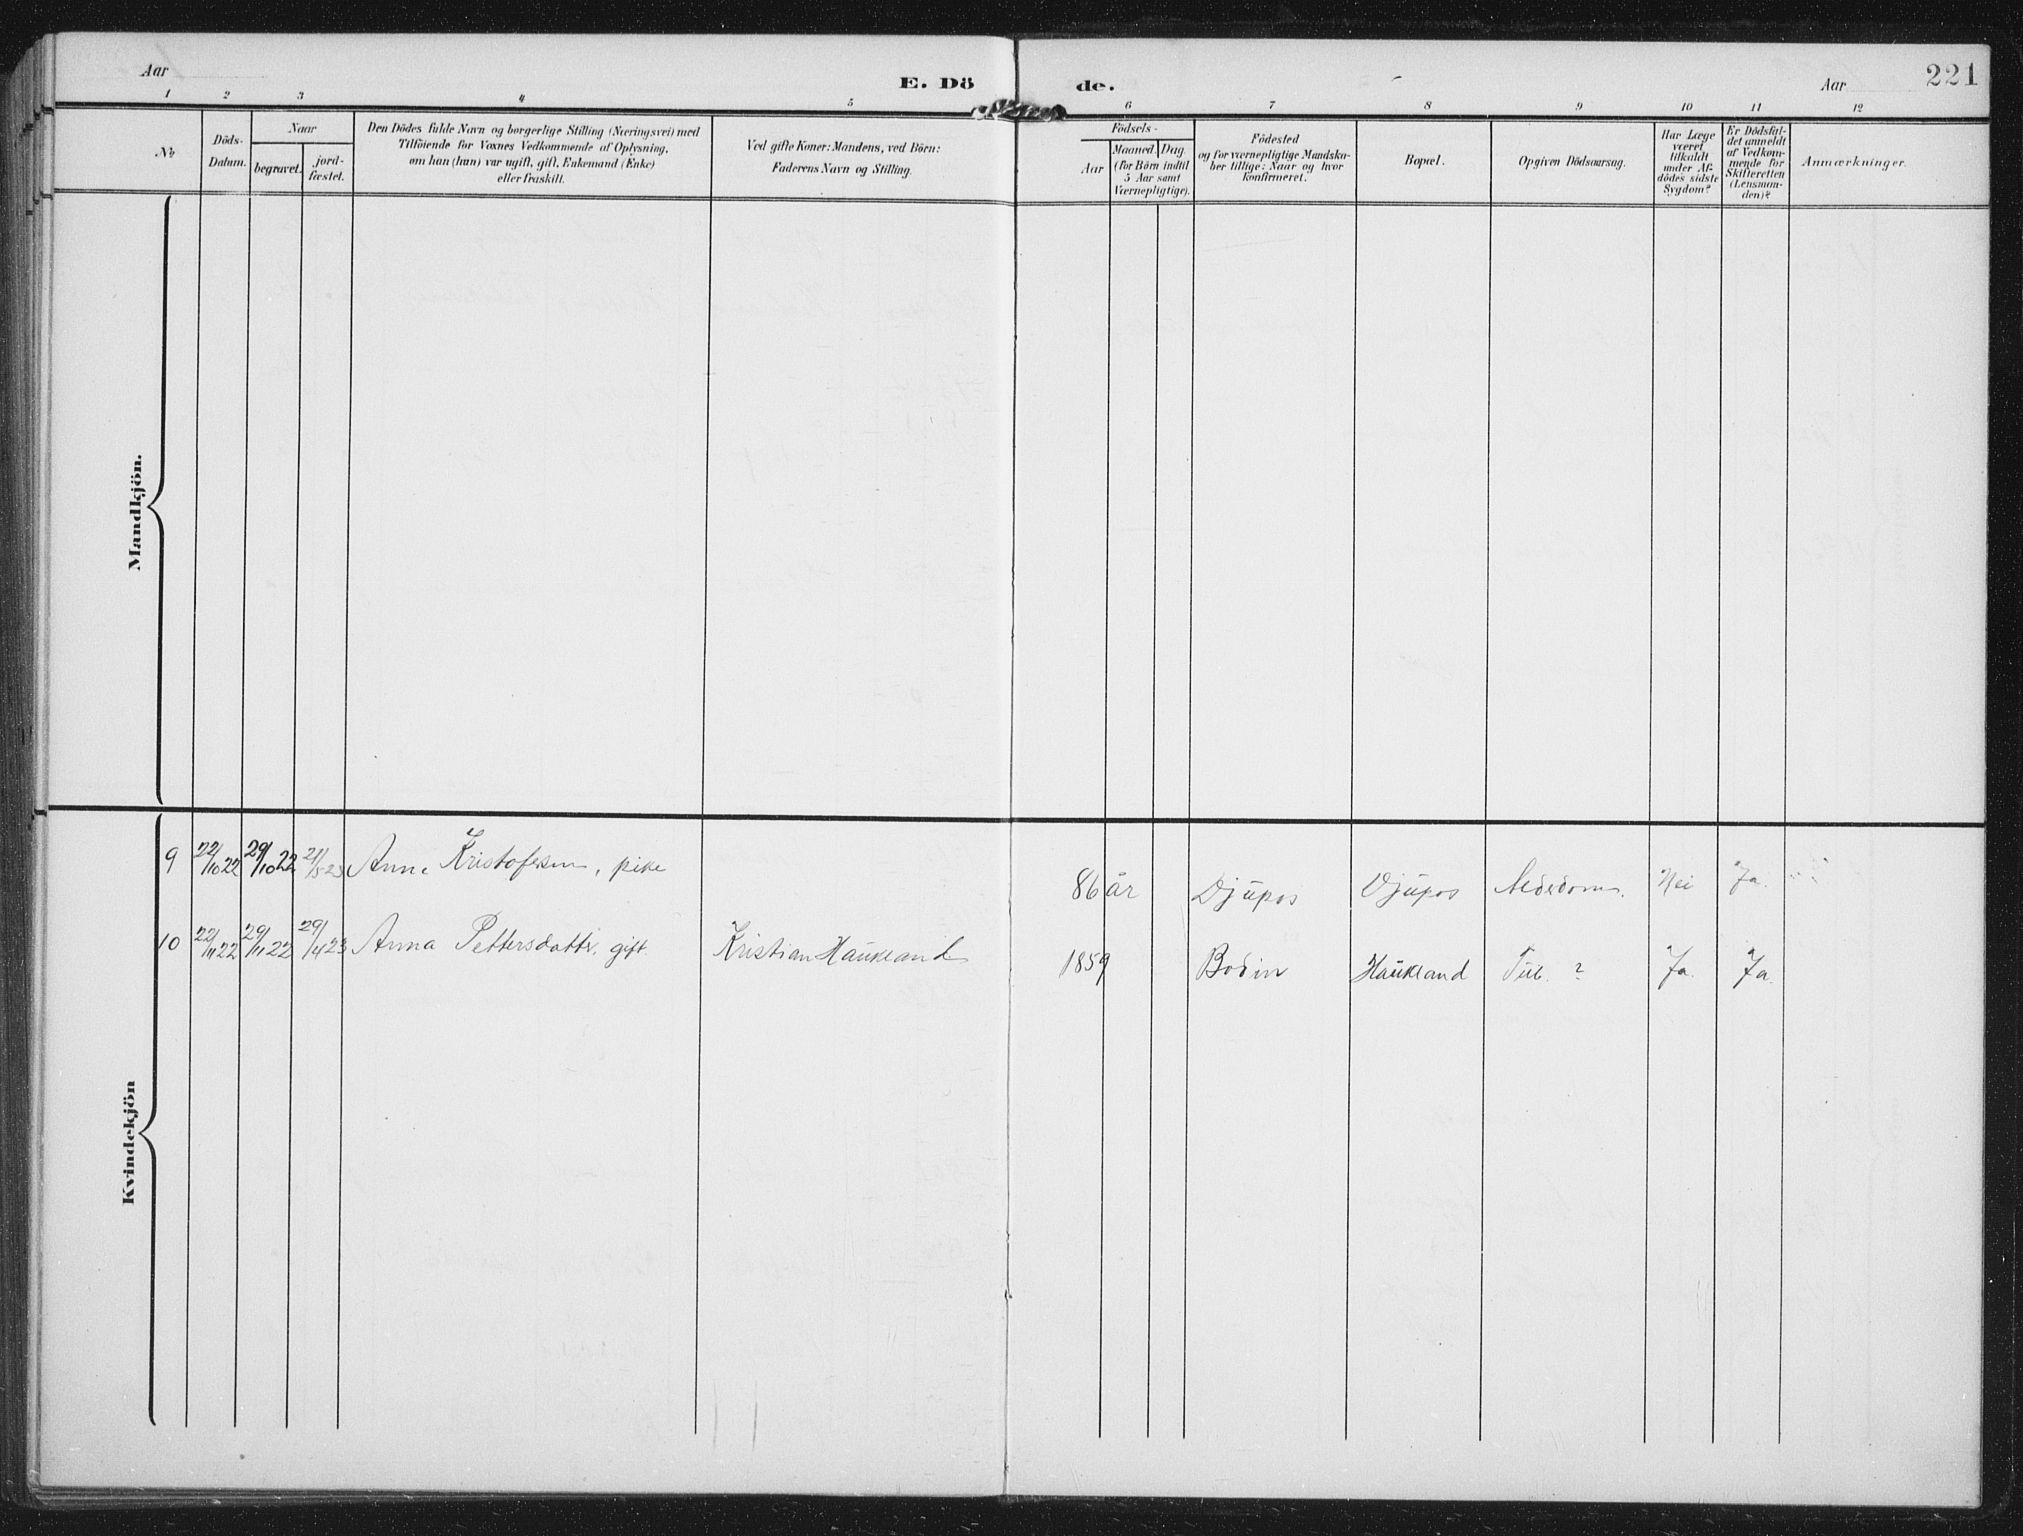 Aar
E. Dö
de.
Aar
221
1 2 3 4 5 6 7 8 9 10 11 12
No
Döds-
Datum.
Naar
begravet.
jord-
fæstet.
Den Dödes fulde Navn og borgerlige Stilling (Næringsvei) med
Tilföiende for Voxnes Vedkommende af Oplysning,
om han (hun) var ugift, gift, Enkemand (Enke)
eller fraskilt.
Ved gifte Koner: Mandens, ved Börn:
Faderens Navn og Stilling.
Födsels-
Aar
Maaned. Dag.
(for Börn indtil
5 Aar samt
Værnepligtige).
Födested
og for værnepligtige Mandska-
ber tillige: Naar og hvor
konfirmeret.
Bopæl.
Opgiven Dödsaarsag.
Har Læge
været
tilkaldt
under Af-
dödes sidste
Sygdom?
Er Dödsfal-
det anmeldt
af Vedkom-
mende for
Skifteretten
(Lensman-
den)?
Anmærkninger.
Mandkjön.
Kvindekjön
9 22/10 22 29/10 22 21/5 23 Anna Kristofersen, pike 86 år Djupos Djupos Alderdom. Nei Ja.
10 22/11 22 29/11 22 29/4 23 Anna Pettersdattr. gift. Kristian Haukland 1859 Bodin Haukland Tub. ? Ja. Ja.